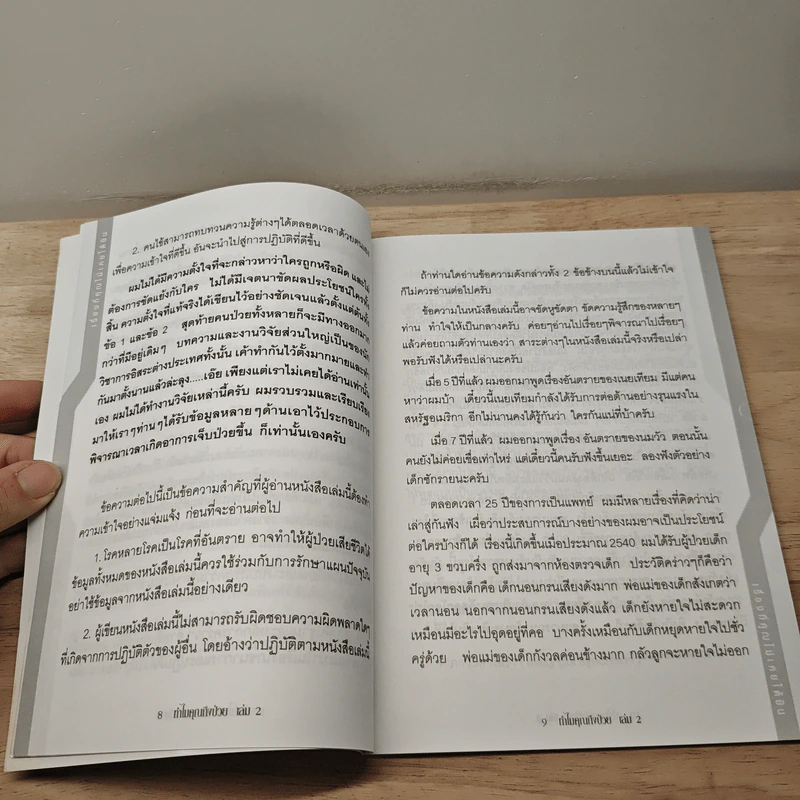 2. คนใช้สามารถทบทวนความรู้ต่างๆได้ตลอดเวลาด้วยตนเอง
เพื่อความเข้าใจที่ดีขึ้น อันจะนำไปสู่การปฏิบัติที่ดีขึ้น
ผมไม่ได้มีความตั้งใจที่จะกล่าวหาว่าใครถูกหรือผิด และไม่
ต้องการขัดแย้งกับใคร ไม่ได้มีเจตนาขัดผลประโยชน์ใครทั้ง
สิ้น ความตั้งใจที่แท้จริงได้เขียนไว้อย่างชัดเจนแล้วตั้งแต่ต้นทั้ง
ข้อ 1 และข้อ 2 สุดท้ายคนป่วยทั้งหลายก็จะมีทางออกมาก
กว่าที่มีอยู่เดิมๆ บทความและงานวิจัยส่วนใหญ่เป็นของนัก
วิชาการอิสระต่างประเทศทั้งนั้น เค้าทำกันไว้ตั้งมากมายและทำ
กันมาตั้งนานแล้วล่ะลุง.....เอ้ย เพียงแต่เราไม่เคยได้อ่านเท่านั้น
เอง ผมไม่ได้ทำงานวิจัยเหล่านี้ครับ ผมรวบรวมและเรียบเรียง
มาให้เราๆท่านๆได้รับข้อมูลหลายๆด้านเอาไว้ประกอบการ
พิจารณาเวลาเกิดอาการเจ็บป่วยขึ้น ก็เท่านั้นเองครับ
ข้อความต่อไปนี้เป็นข้อความสำคัญที่ผู้อ่านหนังสือเล่มนี้ต้องทำ
ความเข้าใจอย่างแจ่มแจ้ง ก่อนที่จะอ่านต่อไป
1. โรคหลายโรคเป็นโรคที่อันตราย อาจทำให้ผู้ป่วยเสียชีวิตได้
ข้อมูลทั้งหมดของหนังสือเล่มนี้ควรใช้ร่วมกับการรักษาแผนปัจจุบัน
อย่าใช้ข้อมูลจากหนังสือเล่มนี้อย่างเดียว
2. ผู้เขียนหนังสือเล่มนี้ไม่สามารถรับผิดชอบความผิดพลาดใดๆ
ที่เกิดจากการปฏิบัติตัวของผู้อื่น โดยอ้างว่าปฏิบัติตามหนังสือเล่มนี้
8 ทำไมคุณถึงป่วย เล่ม 2
เรื่องที่คุณไม่เคยได้ยิน
ถ้าท่านใดอ่านข้อความดังกล่าวทั้ง 2 ข้อข้างบนนี้แล้วไม่เข้าใจ
ก็ไม่ควรอ่านต่อไปครับ
ข้อความในหนังสือเล่มนี้อาจขัดหูขัดตา ขัดความรู้สึกของหลายๆ
ท่าน ทำใจให้เป็นกลางครับ ค่อยๆอ่านไปเรื่อยๆพิจารณาไปเรื่อยๆ
แล้วค่อยถามตัวท่านเองว่า สาระต่างๆในหนังสือเล่มนี้จริงหรือเปล่า
พอรับฟังได้หรือเปล่านะครับ
เมื่อ 5 ปีที่แล้ว ผมออกมาพูดเรื่องอันตรายของเนยเทียม มีแต่คน
หาว่าผมบ้า เดี๋ยวนี้เนยเทียมกำลังได้รับการต่อต้านอย่างรุนแรงใน
สหรัฐอเมริกา อีกไม่นานคงได้รู้กันว่า ใครกันแน่ที่บ้าครับ
เมื่อ 7 ปีที่แล้ว ผมออกมาพูดเรื่อง อันตรายของนมวัว ตอนนั้น
คนยังไม่ค่อยเชื่อเท่าไหร่ แต่เดี๋ยวนี้คนรับฟังขึ้นเยอะ ลองฟังตัวอย่าง
เด็กซักรายนะครับ
ตลอดเวลา 25 ปีของการเป็นแพทย์ ผมมีหลายเรื่องที่คิดว่าน่า
เล่าสู่กันฟัง เผื่อว่าประสบการณ์บางอย่างของผมอาจเป็นประโยชน์
ต่อใครบ้างก็ได้ เรื่องนี้เกิดขึ้นเมื่อประมาณ 2540 ผมได้รับผู้ป่วยเด็ก
อายุ 3 ขวบครึ่ง ถูกส่งมาจากห้องตรวจเด็ก ประวัติคร่าวๆก็คือว่า
ปัญหาของเด็กคือ เด็กนอนกรนเสียงดังมาก พ่อแม่ของเด็กสังเกตว่า
เวลานอน นอกจากนอนกรนเสียงดังแล้ว เด็กยังหายใจไม่สะดวก
เหมือนมีอะไรไปอุดอยู่ที่คอ บางครั้งเหมือนกับเด็กหยุดหายใจไปชั่ว
ครู่ด้วย พ่อแม่ของเด็กกังวลค่อนข้างมาก กลัวลูกจะหายใจไม่ออก
9 ทำไมคุณถึงป่วย เล่ม 2
เรื่องที่คุณไม่เคยได้ยิน